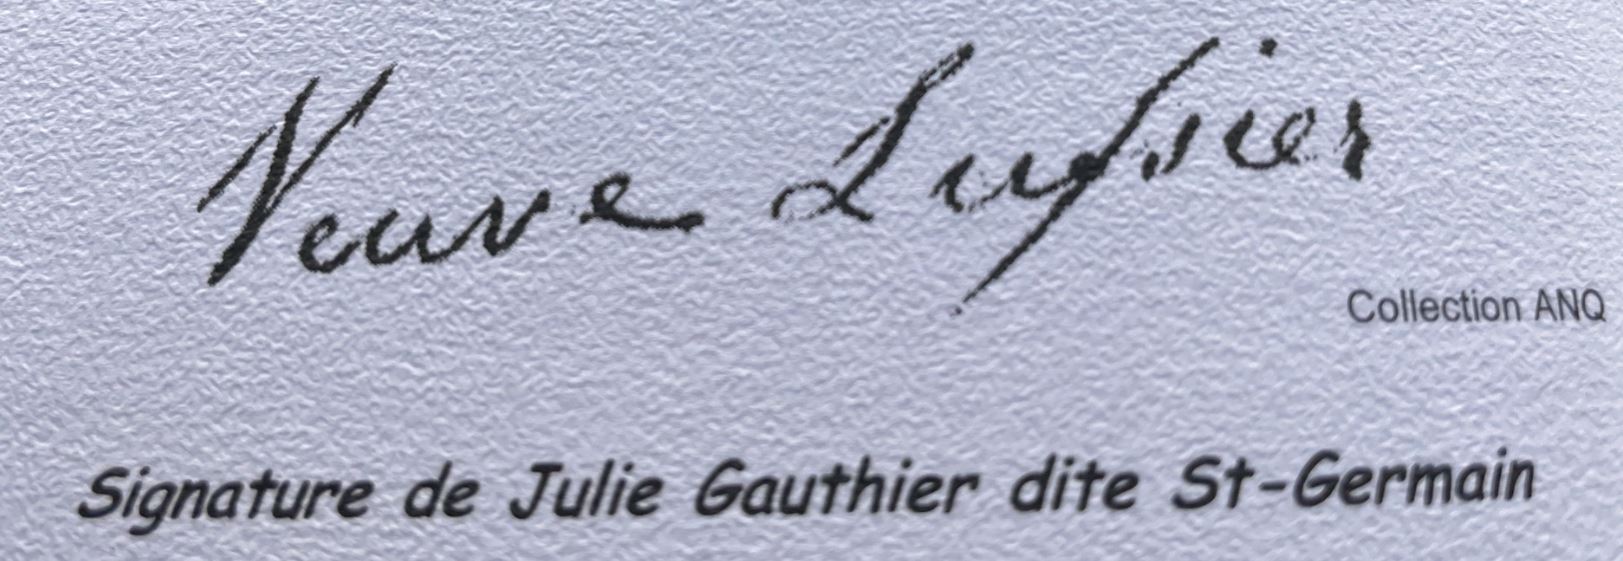 Veuve Lussier
Collection ANQ
Signature de Julie Gauthier dite St-Germain